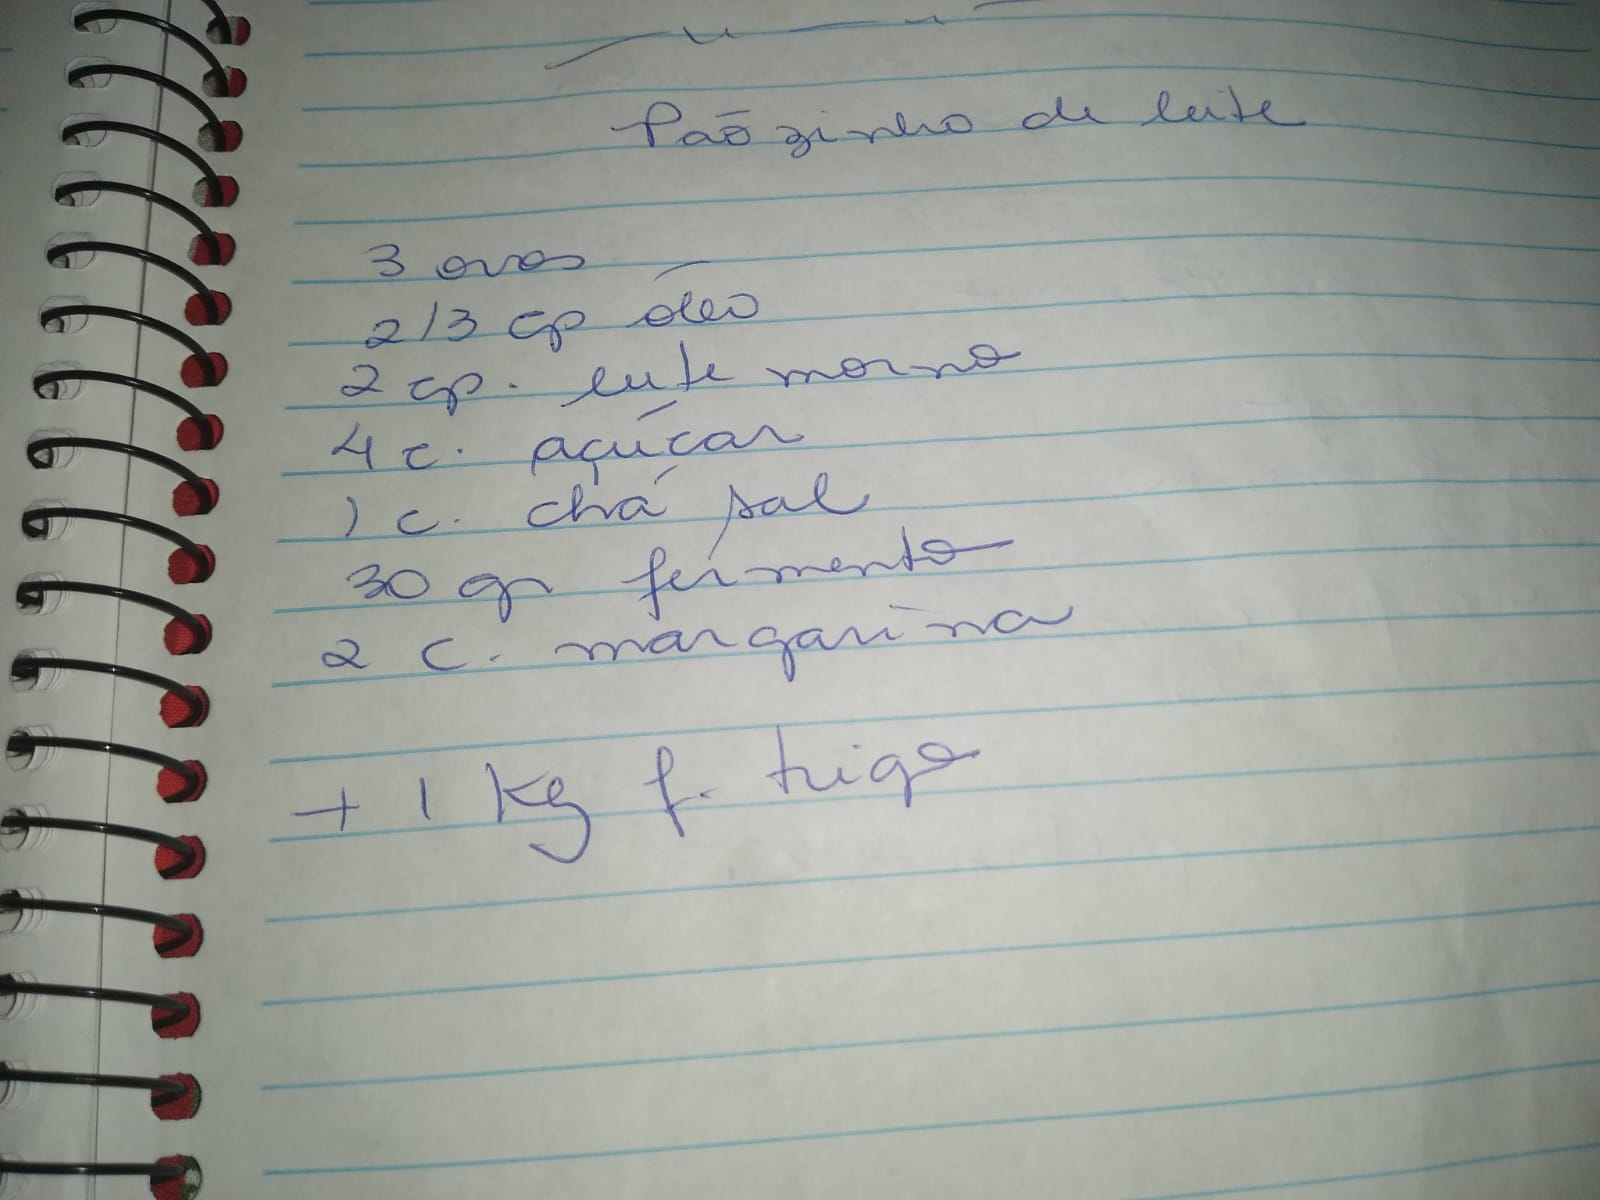 Paõzinho de leite
3 ovos
2/3 cp óleo
2 cp. leite morno
4 c. açúcar
1 c. chá sal
30 gr fermento
2 c. margarina
+ 1 kg f. trigo